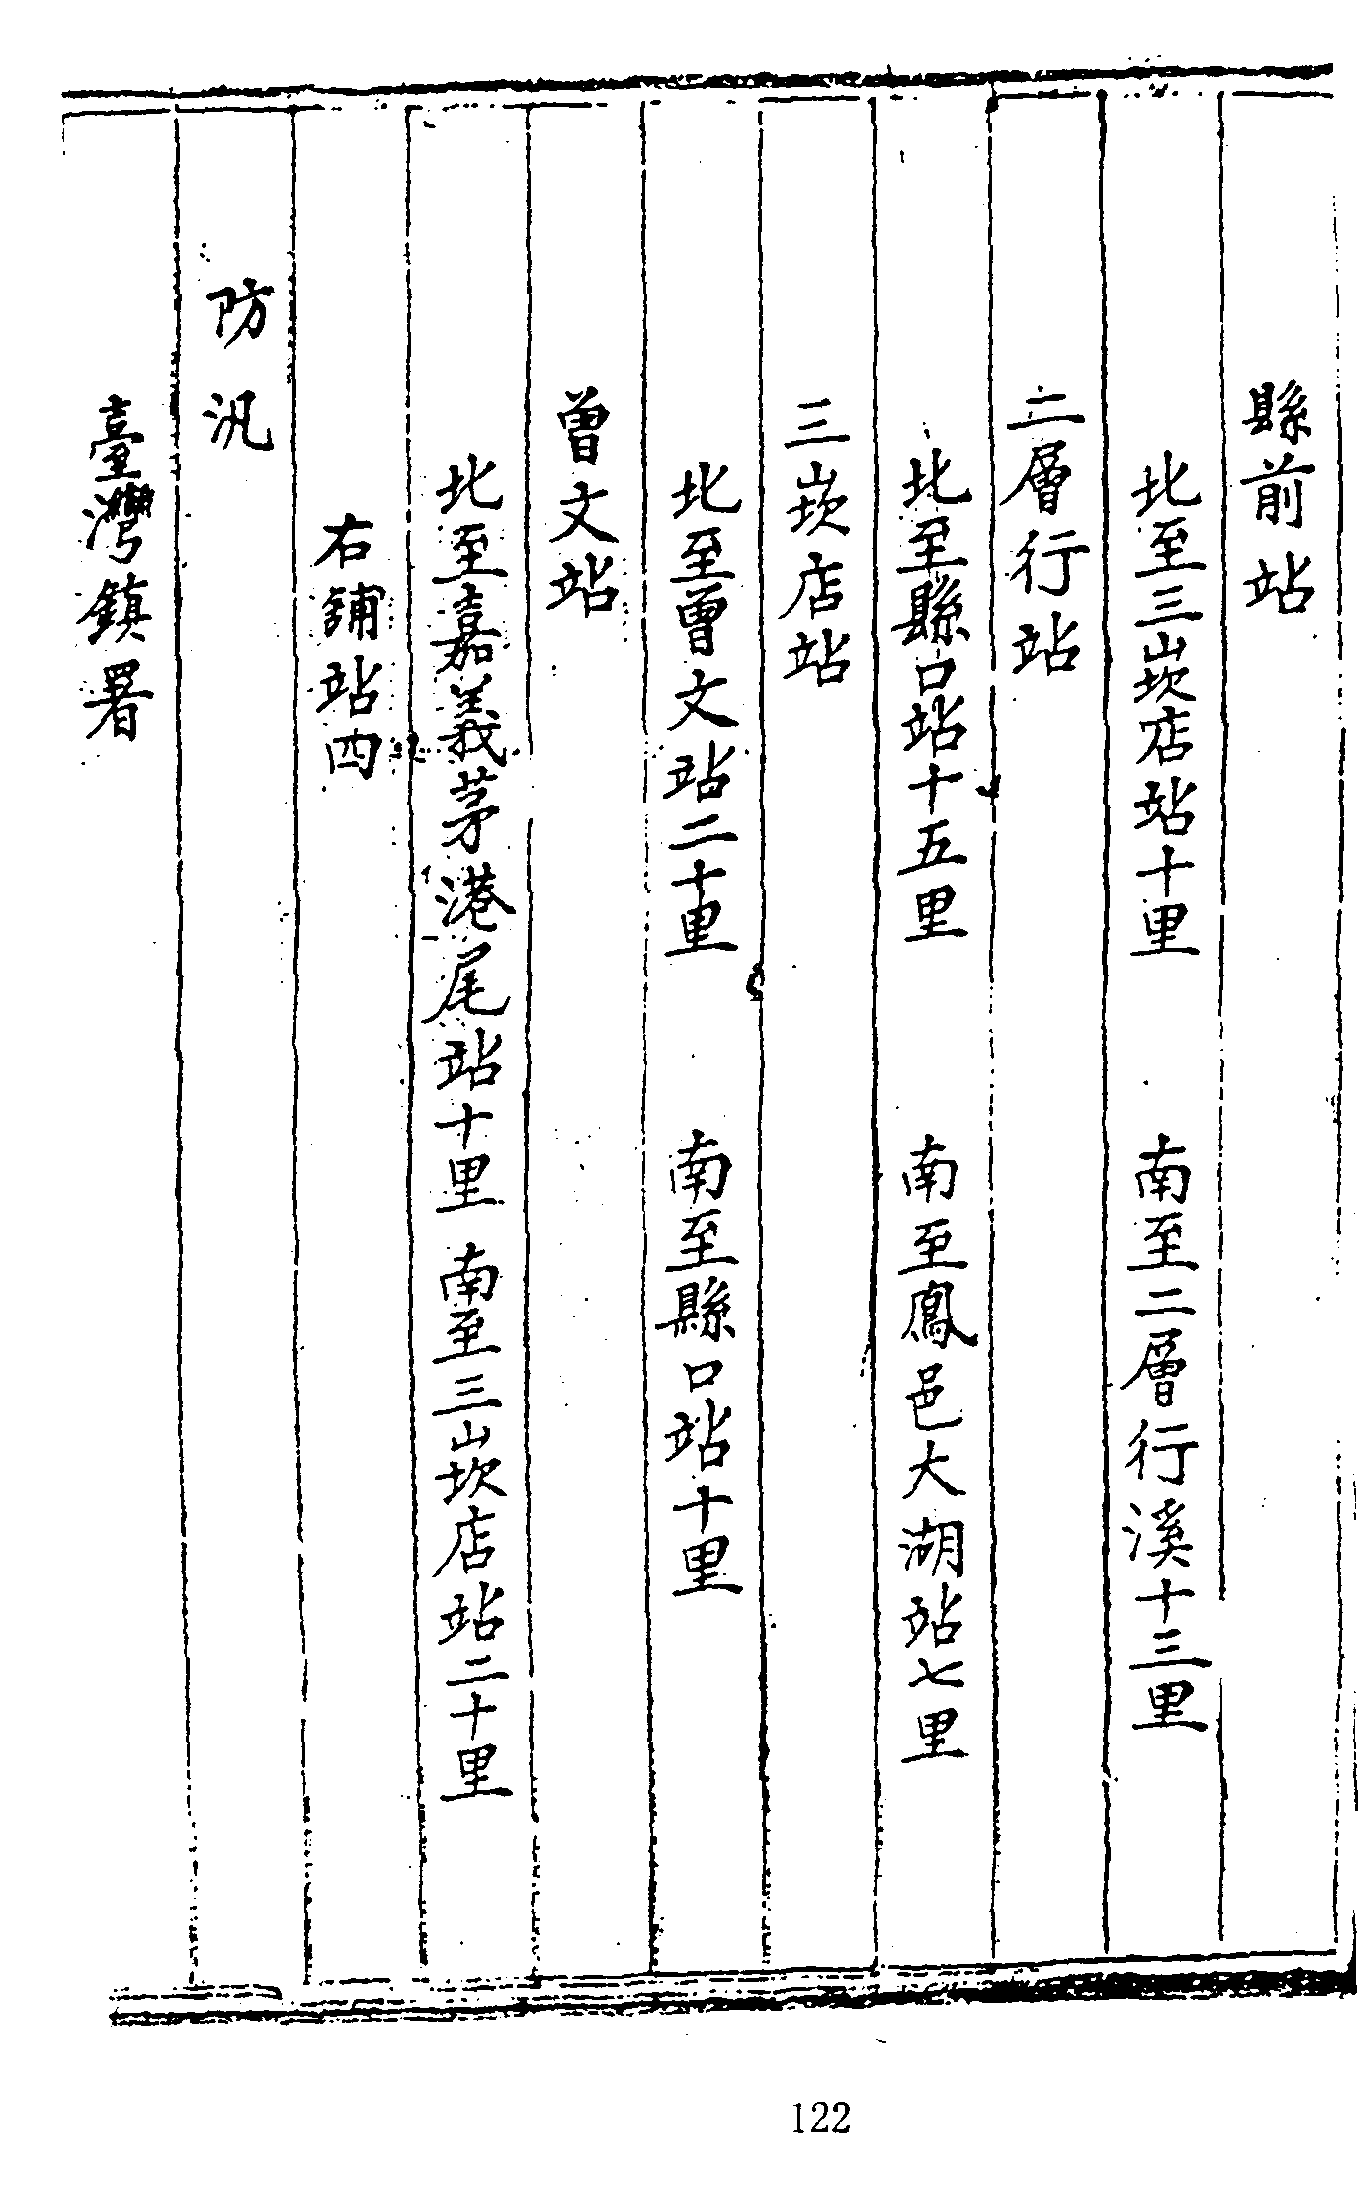 縣前站
北至三崁店站十里　南至二層行溪十三里
二層行站
北至縣口站十五里　南至鳳邑大湖站七里
三崁店站
北至曾文站二十里　南至縣口站十里
曾文站
北至嘉義茅港尾站十里　南至三崁店站二十里
右舖站四
防汛
臺灣鎮署
122